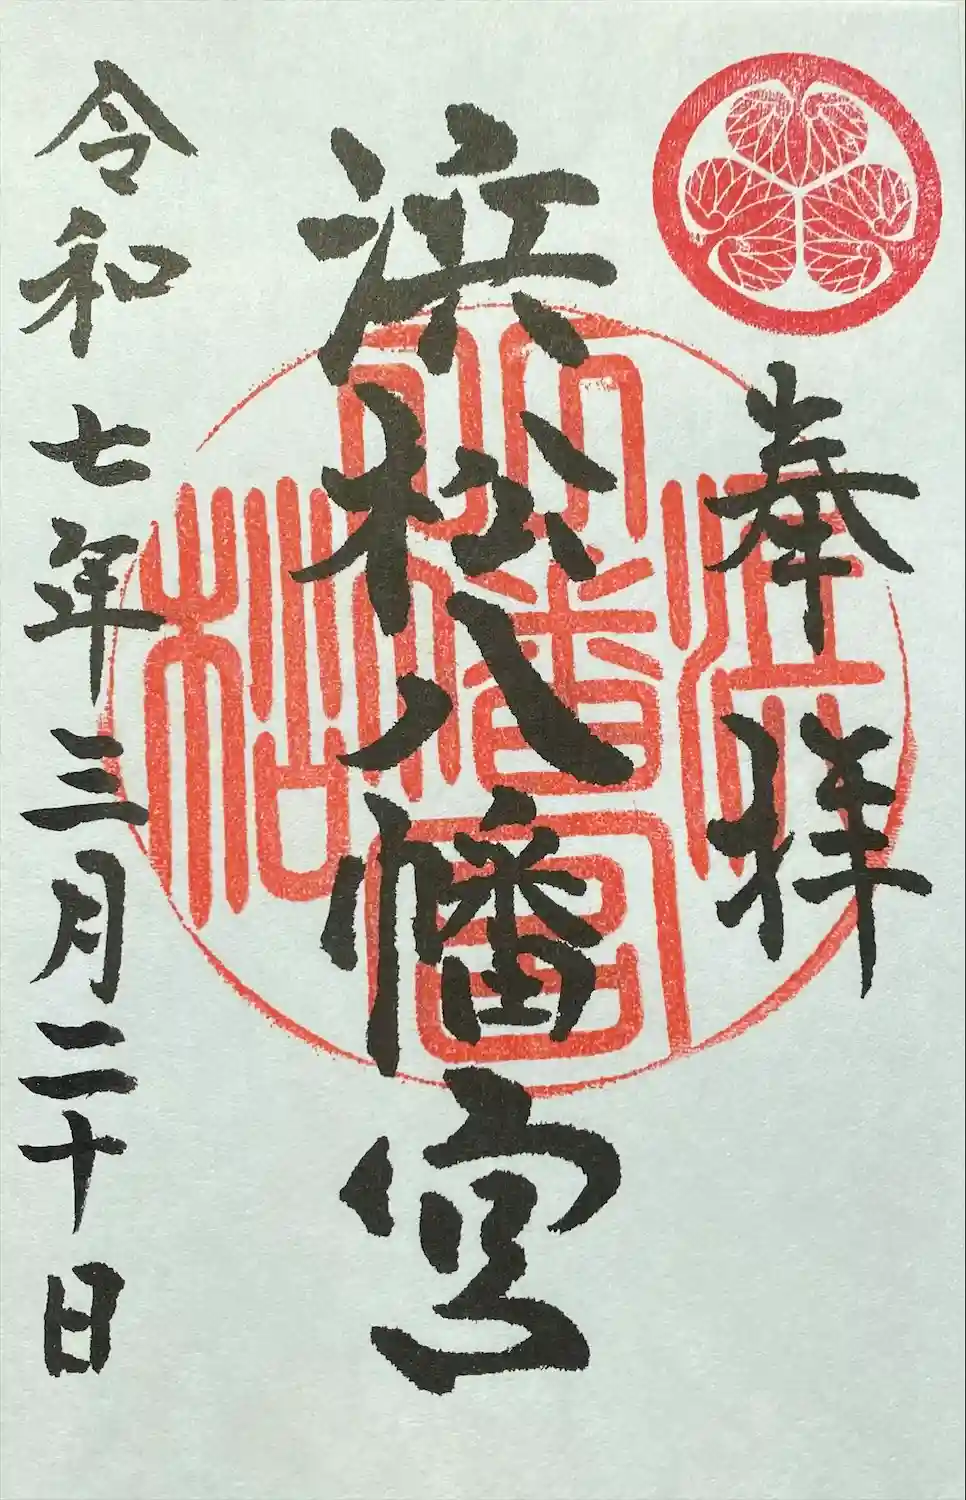 奉拝
浜松八幡宮
令和七年三月二十日
濱松
八幡宮